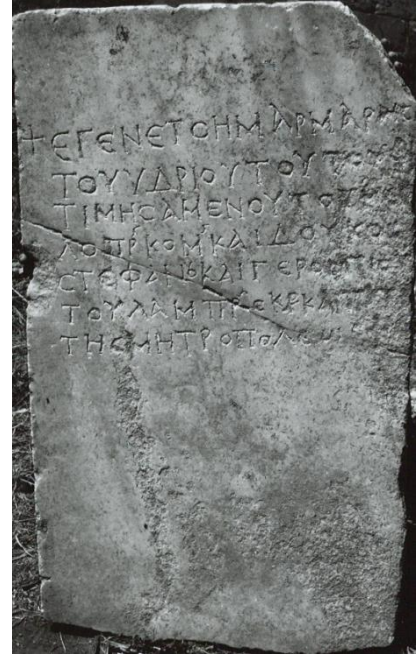 + ΕΓΕΝΕΤΟΗΜΑΡΜΑΡΩC
ΤΟΥΥΔΡΙΟΥΤΟΥΤΟΥ
ΤΙΜΗCΑΜΕΝΟΥΤΟΥ
ΛΟΠΡΚΟΜΚΑΙΔΟΥΚΟC
CΤΕΦΑΝȢΚΑΙΓΕΡΟΝΤΙΟ
ΤΟΥΛΑΜΠΡΕΚΡΚΑΙ
ΤΗCΜΗΤΡΟΠΟΛΕΩC